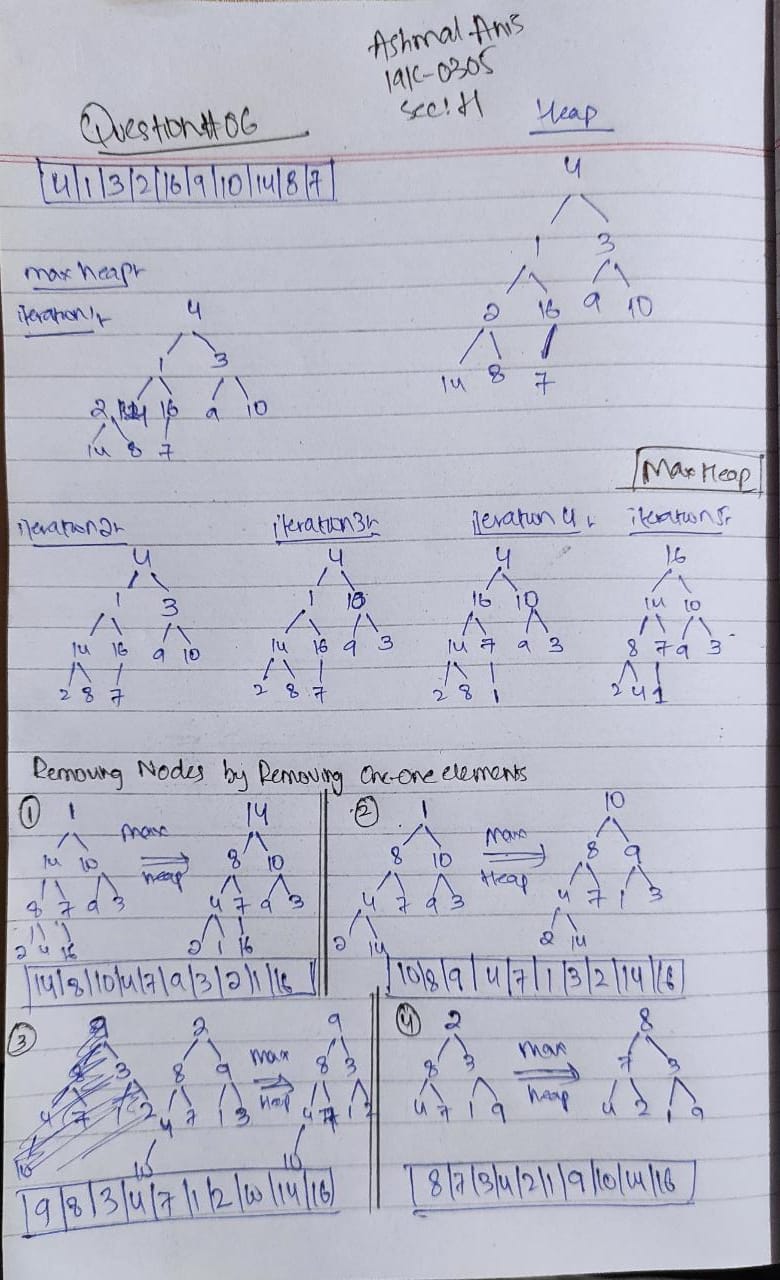 Ashmal Anis
19K-0305
Sec: H
Question#06
Heap
4|1|3|2|16|9|10|14|8|7
4
1 3
2 16 9 10
14 8 7
max heap:
iteration 1:
4
1 3
2 16 9 10
14 8 7
Max Heap
iteration 2:
4
1 3
14 16 9 10
2 8 7
iteration 3:
4
1 10
14 16 9 3
2 8 7
iteration 4:
4
16 10
14 7 9 3
2 8 1
iteration 5:
16
14 10
8 7 9 3
2 4 1
Removing Nodes by Removing One-One elements
①
1
14 10
8 7 9 3
2 4 16
max
heap
14
8 10
4 7 9 3
2 1 16
14|8|10|4|7|9|3|2|1|16
②
1
8 10
4 7 9 3
2 14
Max
Heap
10
8 9
4 7 1 3
2 14
10|8|9|4|7|1|3|2|14|16
③
2
8 9
4 7 1 3
10
max
Heap
9
8 3
4 7 1 2
10
9|8|3|4|7|1|2|10|14|16
④
2
8 3
4 7 1 9
max
heap
8
7 3
4 2 1 9
8|7|3|4|2|1|9|10|14|16